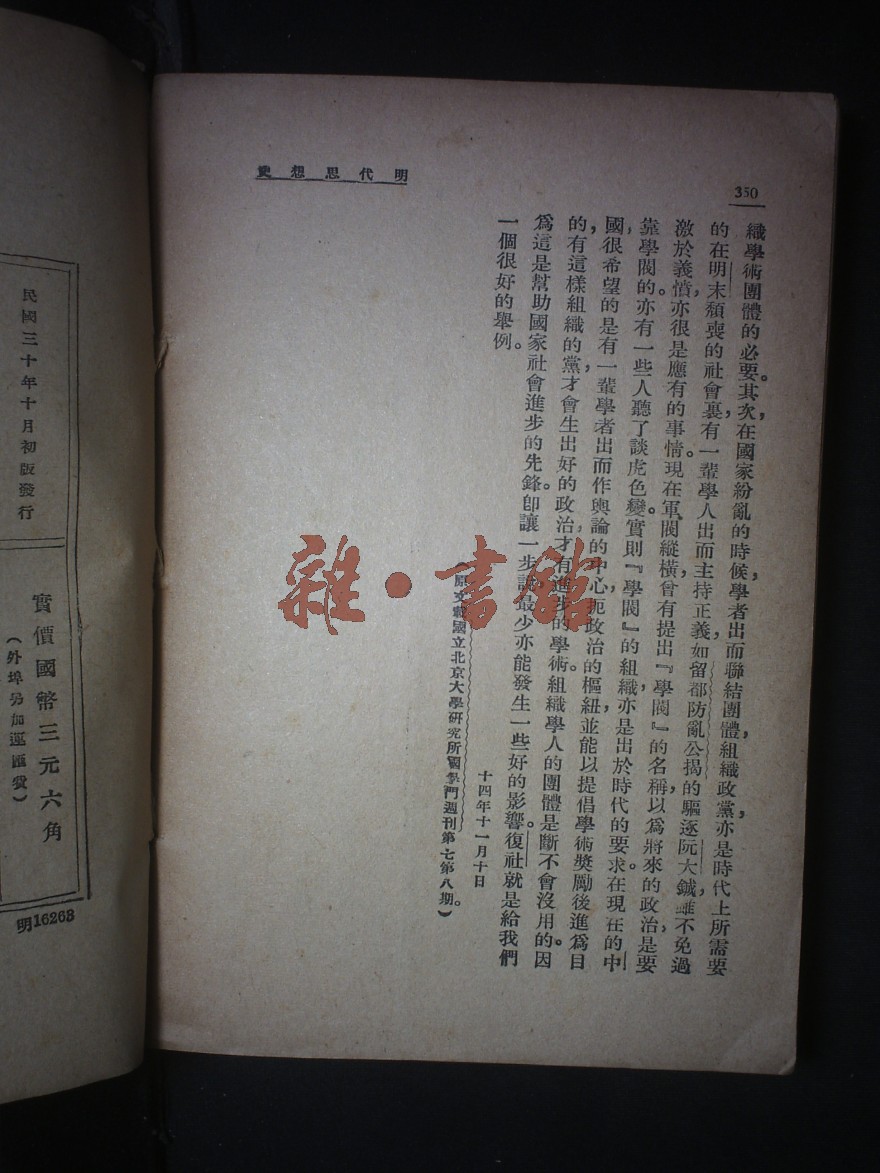 350
明代思想史
織學術團體的必要。其次，在國家紛亂的時候，學者出而聯結團體，組織政黨，亦是時代上所需要
的。在明末頹喪的社會裏，有一輩學人出而主持正義，如留都防亂公揭的驅逐阮大鋮，雖不免過
激於義憤，亦很是應有的事情。現在軍閥縱橫，曾有提出『學閥』的名稱，以爲將來的政治，是要
靠學閥的。亦有一些人聽了談虎色變。實則『學閥』的組織，亦是出於時代的要求。在現在的中
國，很希望的是有一輩學者出而作輿論的中心，扼政治的樞紐，並能以提倡學術，獎勵後進爲目
的，有這樣組織的黨，才會生出好的政治，才有進步的學術。組織學人的團體，是斷不會沒用的。因
爲這是幫助國家社會進步的先鋒。卽讓一步說，最少亦能發生一些好的影響。復社就是給我們
一個很好的舉例。
十四年十一月十日
（原文載國立北京大學研究所國學門週刊第七第八期。）
民國三十年十月初版發行
實價國幣三元六角
（外埠另加運匯費）
明16263
雜·書館